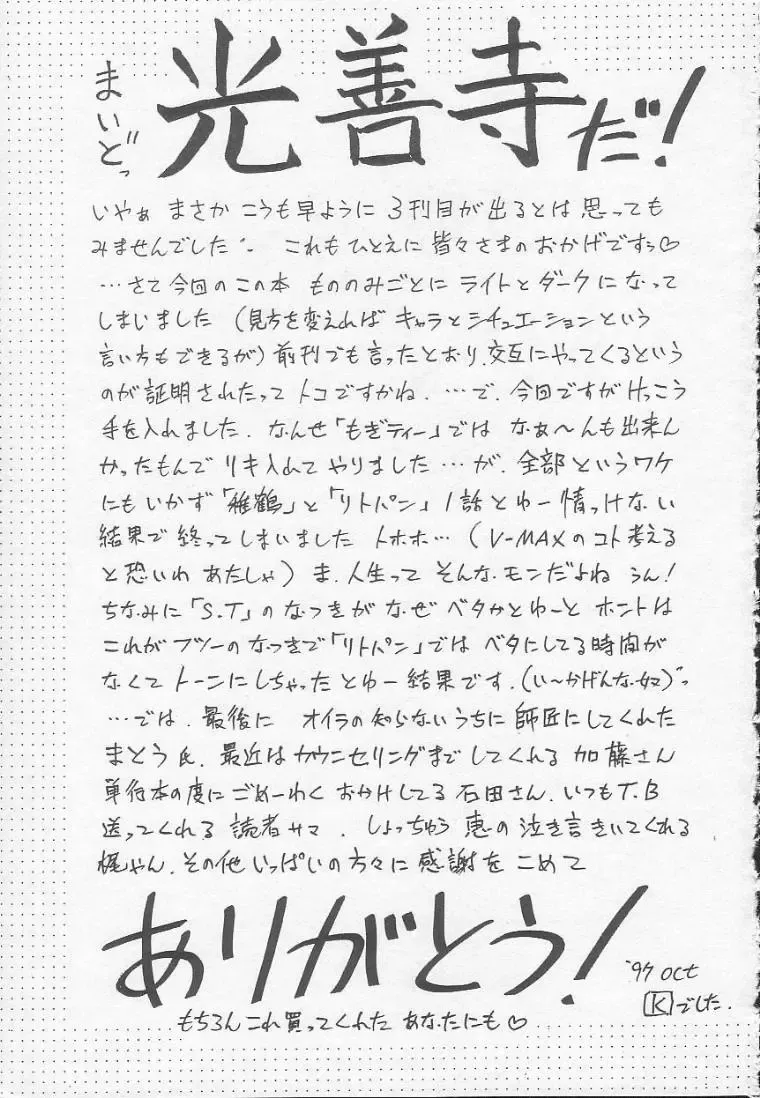 まいどっ
光善寺だ!
いやぁ まさか こうも早ように 3刊目が出るとは 思っても
みませんでした これもひとえに 皆々さまのおかげですぅ♡
…さて今回のこの本 もののみごとに ライトとダークになって
しまいました (見方を変えれば キャラとシチュエーションという
言い方もできるが) 前刊でも言ったとおり、交互にやってくるという
のが証明されたって トコですかね. …で、今回ですがけっこう
手を入れました. なんせ「もぎティー」では なぁ〜んも出来ん
かったもんで リキ入れて やりました …が、全部というワケ
にもいかず「雅鶴」と「リトパン」1話とゆー 情っけない
結果で 終ってしまいました トホホ… (V-MAXのコト考える
と恐いわ あたしゃ) ま、人生って そんなモンだよね うん!
ちなみに「S.T」のなつきが なぜ ベタかとゆーと ホントは
これがフツーのなつきで「リトパン」では ベタにしてる時間が
なくて トーンにしちゃったとゆー結果です. (い〜かげんな奴)
…では、最後に オイラの知らないうちに 師匠にしてくれた
まとう氏、最近は カウンセリングまでしてくれる 加藤さん
単行本の度にごめーわく おかけしてる 石田さん、いつもT.B
送ってくれる 読者サマ、しょっちゅう 恵の泣き言きいてくれる
梶やん、その他いっぱいの方々に 感謝を こめて
ありがとう!
'97 oct
Kでした.
もちろん これ買ってくれた あなたにも♡